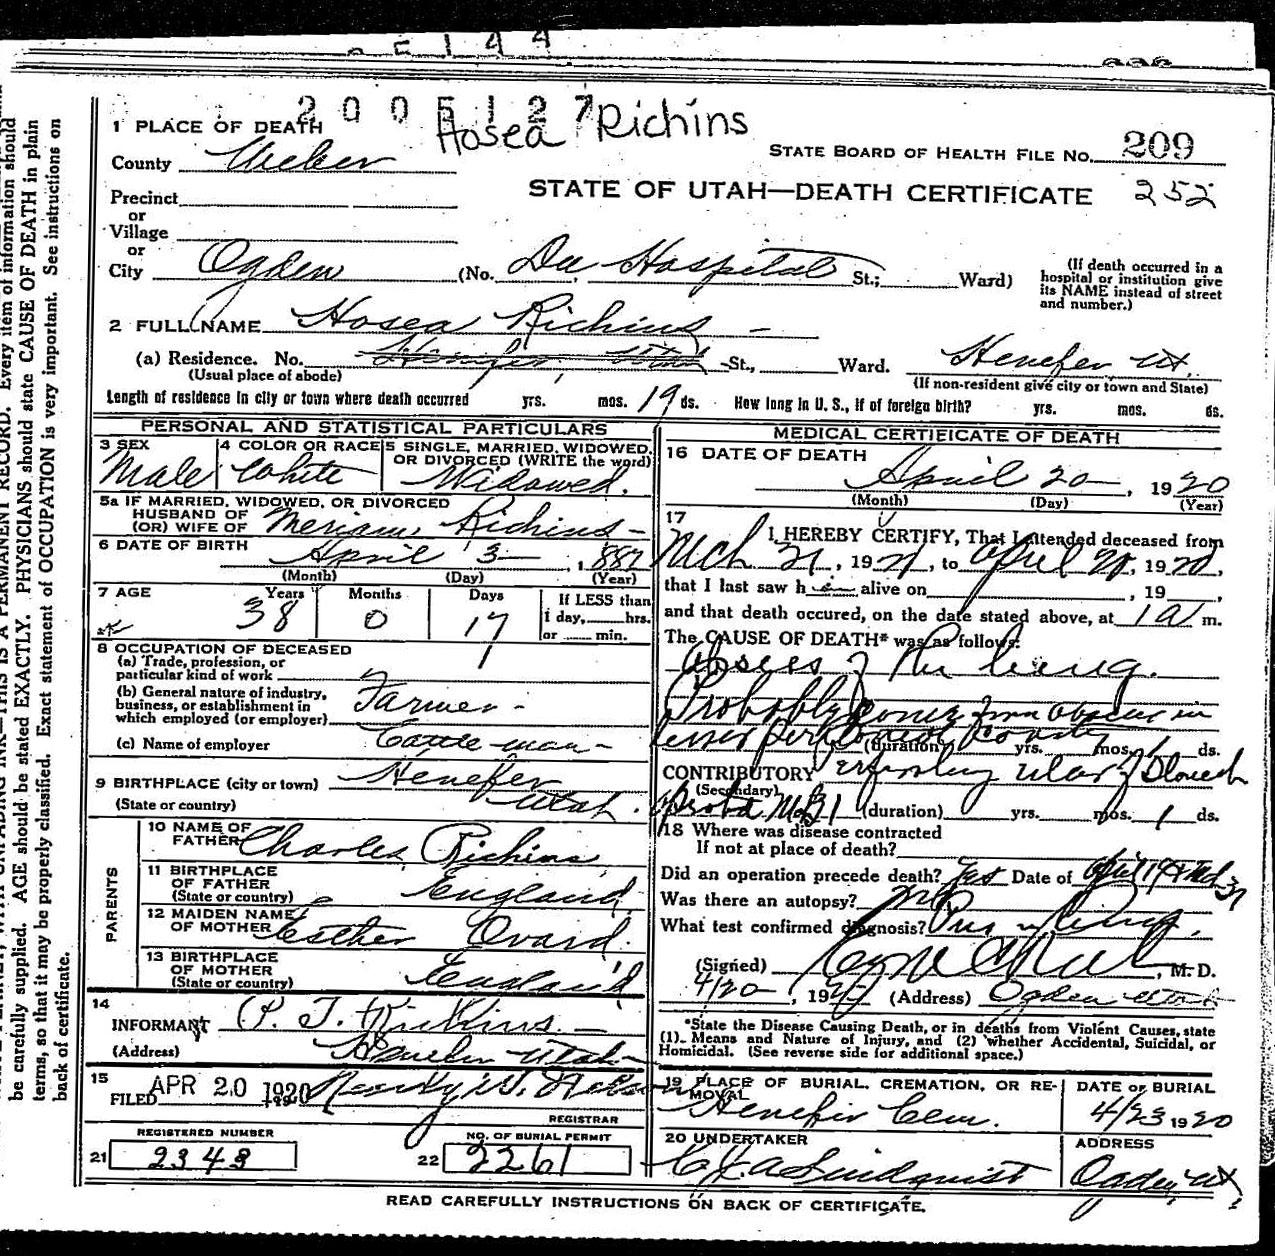 2005127
Hosea Richins
1 PLACE OF DEATH
County Weber
STATE BOARD OF HEALTH FILE NO. 209
Precinct
STATE OF UTAH—DEATH CERTIFICATE 252
or
Village
or
City Ogden (No. Dee Hospital St.; Ward)
(If death occurred in a
hospital or institution give
its NAME instead of street
and number.)
2 FULL NAME Hosea Richins
(a) Residence. No. Henefer, Utah St., Ward. Henefer Ut.
(Usual place of abode) (If non-resident give city or town and State)
Length of residence in city or town where death occurred yrs. mos. 19 ds. How long in U. S., if of foreign birth? yrs. mos. ds.
PERSONAL AND STATISTICAL PARTICULARS
3 SEX Male
4 COLOR OR RACE White
5 SINGLE, MARRIED, WIDOWED,
OR DIVORCED (WRITE the word)
Widowed.
5a IF MARRIED, WIDOWED, OR DIVORCED
HUSBAND OF
(OR) WIFE OF Meriam Richins
6 DATE OF BIRTH
April 3, 1882
(Month) (Day) (Year)
7 AGE Years Months Days If LESS than
38 0 17 1 day, hrs.
or min.
8 OCCUPATION OF DECEASED
(a) Trade, profession, or
particular kind of work
(b) General nature of industry,
business, or establishment in
which employed (or employer) Farmer
(c) Name of employer Cattle man
9 BIRTHPLACE (city or town) Henefer
(State or country) Utah.
PARENTS
10 NAME OF
FATHER Charles Richins
11 BIRTHPLACE
OF FATHER
(State or country) England
12 MAIDEN NAME
OF MOTHER Esther Ovard.
13 BIRTHPLACE
OF MOTHER
(State or country) England
14
INFORMANT P. T. Richins
(Address) Henefer Utah
15
FILED APR 20 1920
REGISTRAR
REGISTERED NUMBER
21 2343
NO. OF BURIAL PERMIT
22 2261
MEDICAL CERTIFICATE OF DEATH
16 DATE OF DEATH
April 20, 1920
(Month) (Day) (Year)
17
I HEREBY CERTIFY, That I attended deceased from
Mch 31, 19 , to April 20, 1920,
that I last saw h alive on , 19 ,
and that death occured, on the date stated above, at 1 a m.
The CAUSE OF DEATH* was as follows:
Abscess of the Lung.
Probably from abscess in
lesser peritoneal cavity
(duration) yrs. mos. ds.
CONTRIBUTORY
(Secondary)
(duration) yrs. mos. 1 ds.
18 Where was disease contracted
If not at place of death?
Did an operation precede death? Yes Date of April 19
Was there an autopsy? no
What test confirmed diagnosis? Pus in
(Signed) , M. D.
4/20, 19 (Address) Ogden Utah
*State the Disease Causing Death, or in deaths from Violent Causes, state
(1). Means and Nature of Injury, and (2) whether Accidental, Suicidal, or
Homicidal. (See reverse side for additional space.)
19 PLACE OF BURIAL, CREMATION, OR RE-
MOVAL
Henefer Cem.
DATE OF BURIAL
4/23 1920
20 UNDERTAKER
Lindquist
ADDRESS
Ogden, Ut
READ CAREFULLY INSTRUCTIONS ON BACK OF CERTIFICATE.
be carefully supplied. AGE should be stated EXACTLY. PHYSICIANS should state CAUSE OF DEATH in plain
terms, so that it may be properly classified. Exact statement of OCCUPATION is very important. See instructions on
back of certificate.